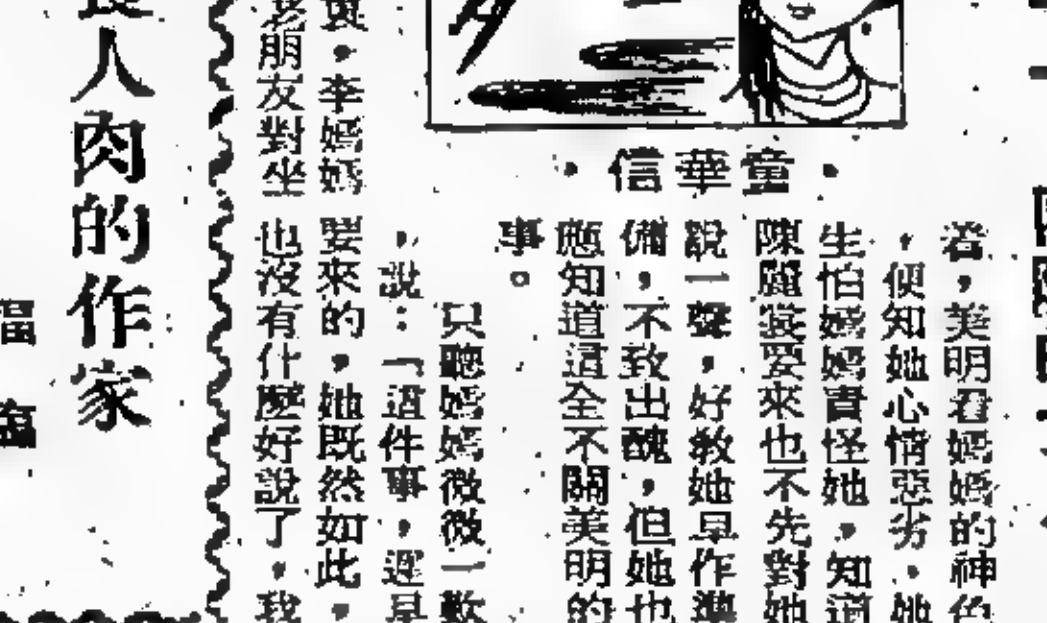 ·信華童·
着，美明看媽媽的神色
，便知她心情惡劣，她
生怕媽媽責怪她，知道
陳麗裳要來也不先對她
說一聲，好教她早作準
備，不致出醜，但她也
應知道這全不關美明的
事。
只聽媽媽微微一歎
，說：「這件事，遲早
要來的，她既然如此，
也沒有什麼好說了，我
，李媽媽
老朋友對坐
人肉的作家